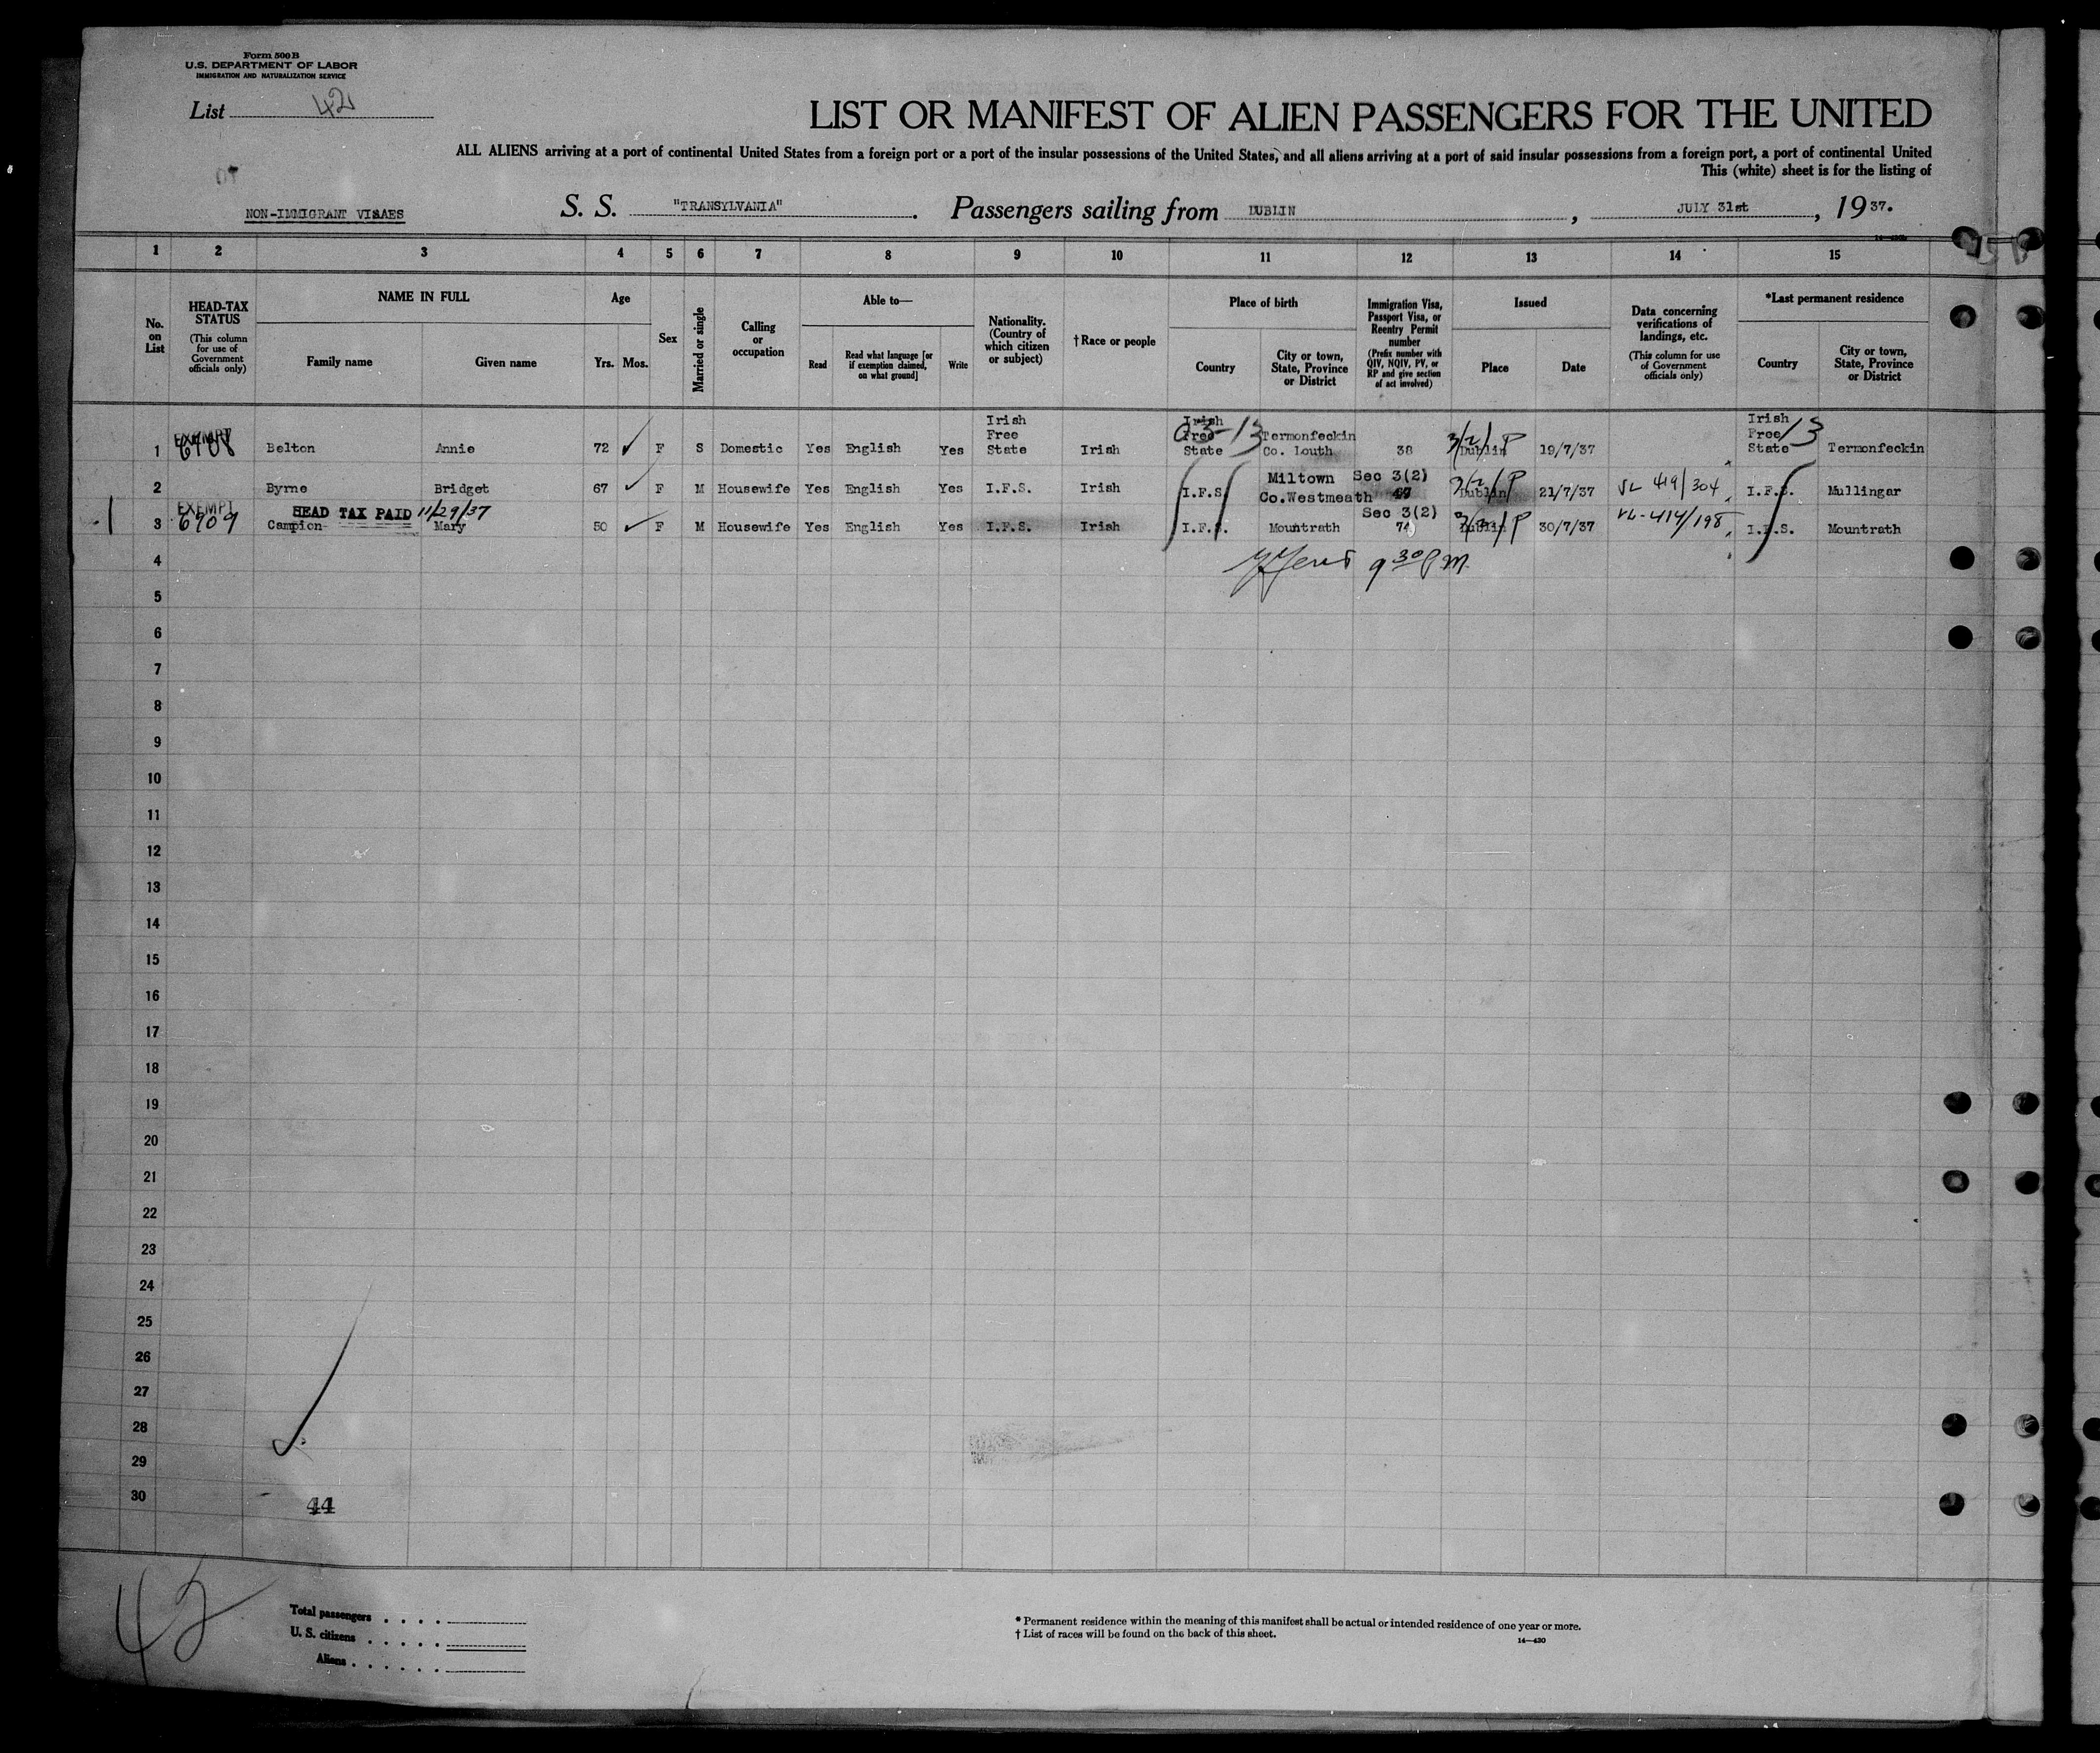 Form 500 B
U.S. DEPARTMENT OF LABOR
IMMIGRATION AND NATURALIZATION SERVICE
List 42
LIST OR MANIFEST OF ALIEN PASSENGERS FOR THE UNITED
ALL ALIENS arriving at a port of continental United States from a foreign port or a port of the insular possessions of the United States, and all aliens arriving at a port of said insular possessions from a foreign port, a port of continental United
This (white) sheet is for the listing of
NON-IMMIGRANT VISAES S. S. "TRANSYLVANIA". Passengers sailing from DUBLIN, JULY 31st, 1937.
1 2 3 4 5 6 7 8 9 10 11 12 13 14 15
No. on List
HEAD-TAX STATUS (This column for use of Government officials only)
NAME IN FULL
Family name Given name
Age
Yrs. Mos.
Sex
Married or single
Calling or occupation
Able to—
Read Read what language [or if exemption claimed, on what ground] Write
Nationality. (Country of which citizen or subject)
†Race or people
Place of birth
Country City or town, State, Province or District
Immigration Visa, Passport Visa, or Reentry Permit number (Prefix number with QIV, NQIV, PV, or RP and give section of act involved)
Issued
Place Date
Data concerning verifications of landings, etc. (This column for use of Government officials only)
*Last permanent residence
Country City or town, State, Province or District
1 EXEMPT 6708 Belton Annie 72 F S Domestic Yes English Yes Irish Free State Irish Irish Free State Termonfeckin Co. Louth 38 3/2/P Dublin 19/7/37 Irish Free State 13 Termonfeckin
2 Byrne Bridget 67 F M Housewife Yes English Yes I.F.S. Irish I.F.S. Miltown Co.Westmeath Sec 3(2) 3/2/P Dublin 21/7/37 VL 419/304 I.F.S. Mullingar
EXEMPT HEAD TAX PAID 11/29/37
3 6709 Campion Mary 50 F M Housewife Yes English Yes I.F.S. Irish I.F.S. Mountrath Sec 3(2) 74 3/2/P Dublin 30/7/37 VL-414/198 I.F.S. Mountrath
4 9 30 PM
5
6
7
8
9
10
11
12
13
14
15
16
17
18
19
20
21
22
23
24
25
26
27
28
29
30
44
42
Total passengers
U. S. citizens
Aliens
* Permanent residence within the meaning of this manifest shall be actual or intended residence of one year or more.
† List of races will be found on the back of this sheet.
14—430